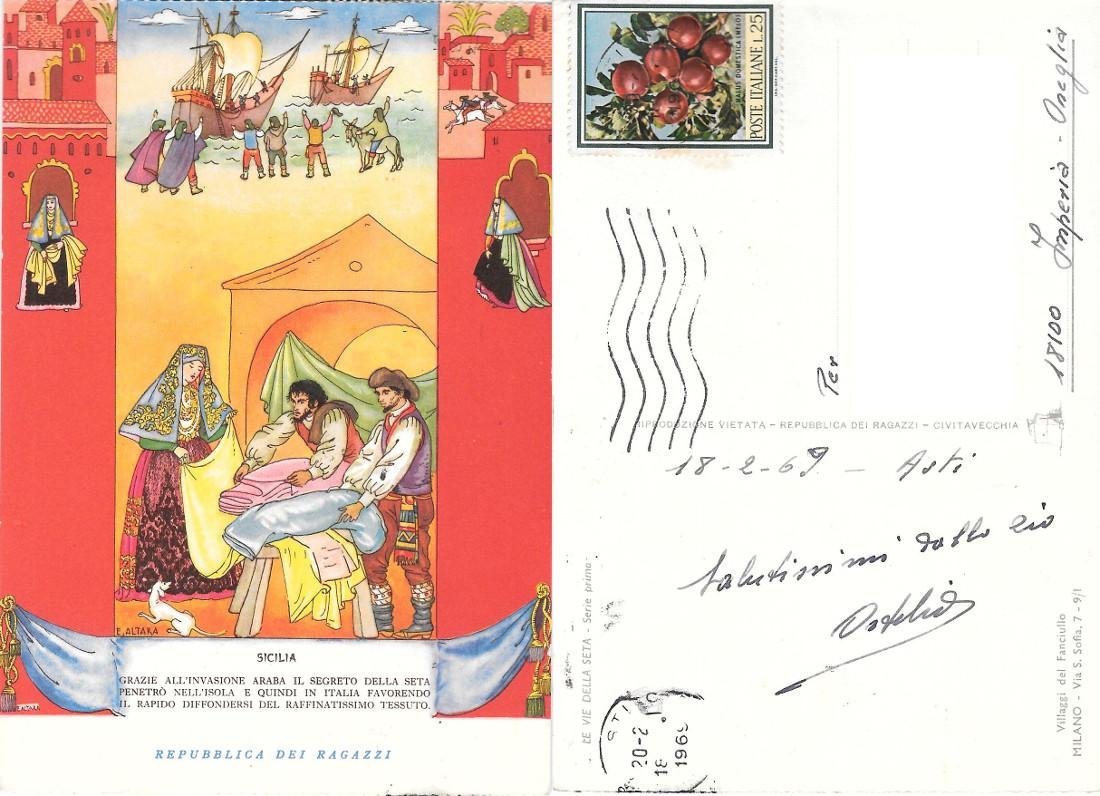 E. ALTARA
SICILIA
GRAZIE ALL'INVASIONE ARABA IL SEGRETO DELLA SETA
PENETRÒ NELL'ISOLA E QUINDI IN ITALIA FAVORENDO
IL RAPIDO DIFFONDERSI DEL RAFFINATISSIMO TESSUTO.
E. ALTARA
REPUBBLICA DEI RAGAZZI
POSTE ITALIANE L. 25
MALUS DOMESTICA (MELO)
Per
18100 Imperia - Oneglia
RIPRODUZIONE VIETATA - REPUBBLICA DEI RAGAZZI - CIVITAVECCHIA
18-2-69 - Asti
Salutissimi dallo zio
LE VIE DELLA SETA - Serie prima
STI
20-2
18
1969
Villaggi del Fanciullo
MILANO - Via S. Sofia, 7 - 9/1